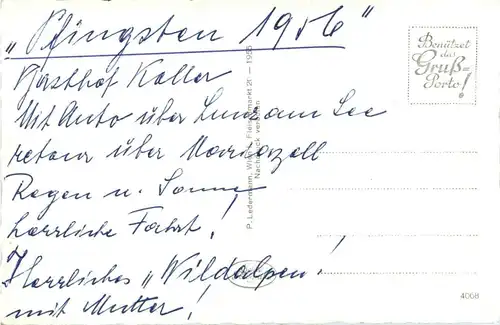 „Pfingsten 1956"
Gasthof Koller
Mit Auto über Lunz am See
retour über Mariazell
Regen u. Sonne
herrliche Fahrt!
Herrliches „Wildalpen!
mit Mutter!
Benützet
das
Gruß=
Porto!
P. Ledermann, Wien I, Fleischmarkt 21 — 1955
Nachdruck verboten
4008